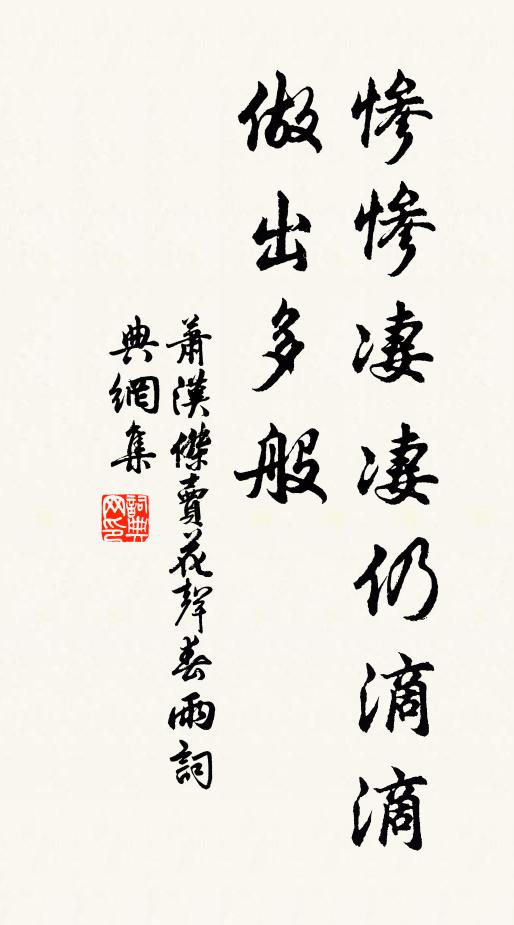 慘慘凄凄仍滴滴
做出多般
蕭漢傑賣花聲春雨詞
典網集
詞典網印